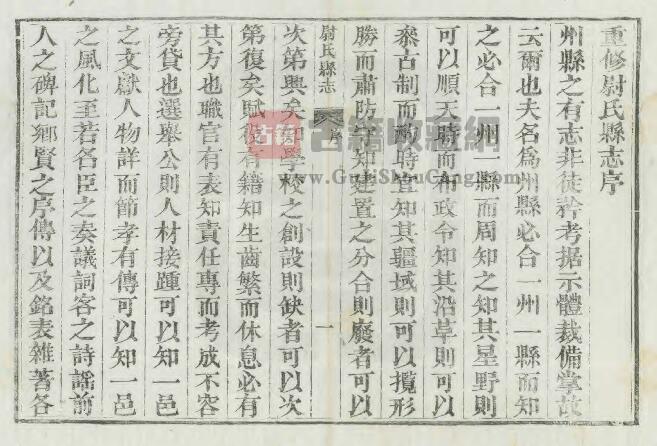 重修尉氏縣志序
州縣之有志非徒矜考据示體裁備掌故
云爾也夫名爲州縣必合一州一縣而知
之必合一州一縣而周知之知其星野則
可以順天時而布政令知其沿革則可以
叅古制而酌時宜知其疆域則可以攬形
勝而肅防守知建置之分合則廢者可以
尉氏縣志 序 一
次第興矣知學校之創設則缺者可以次
第復矣賦役有籍知生齒繁而休息必有
其方也職官有表知責任專而考成不容
旁貸也選舉公則人材接踵可以知一邑
之文獻人物詳而節孝有傳可以知一邑
之風化至若名臣之奏議詞客之詩謠前
人之碑記鄉賢之序傳以及銘表雜著各
古籍
古籍收藏網
www.GuJiShouCang.com